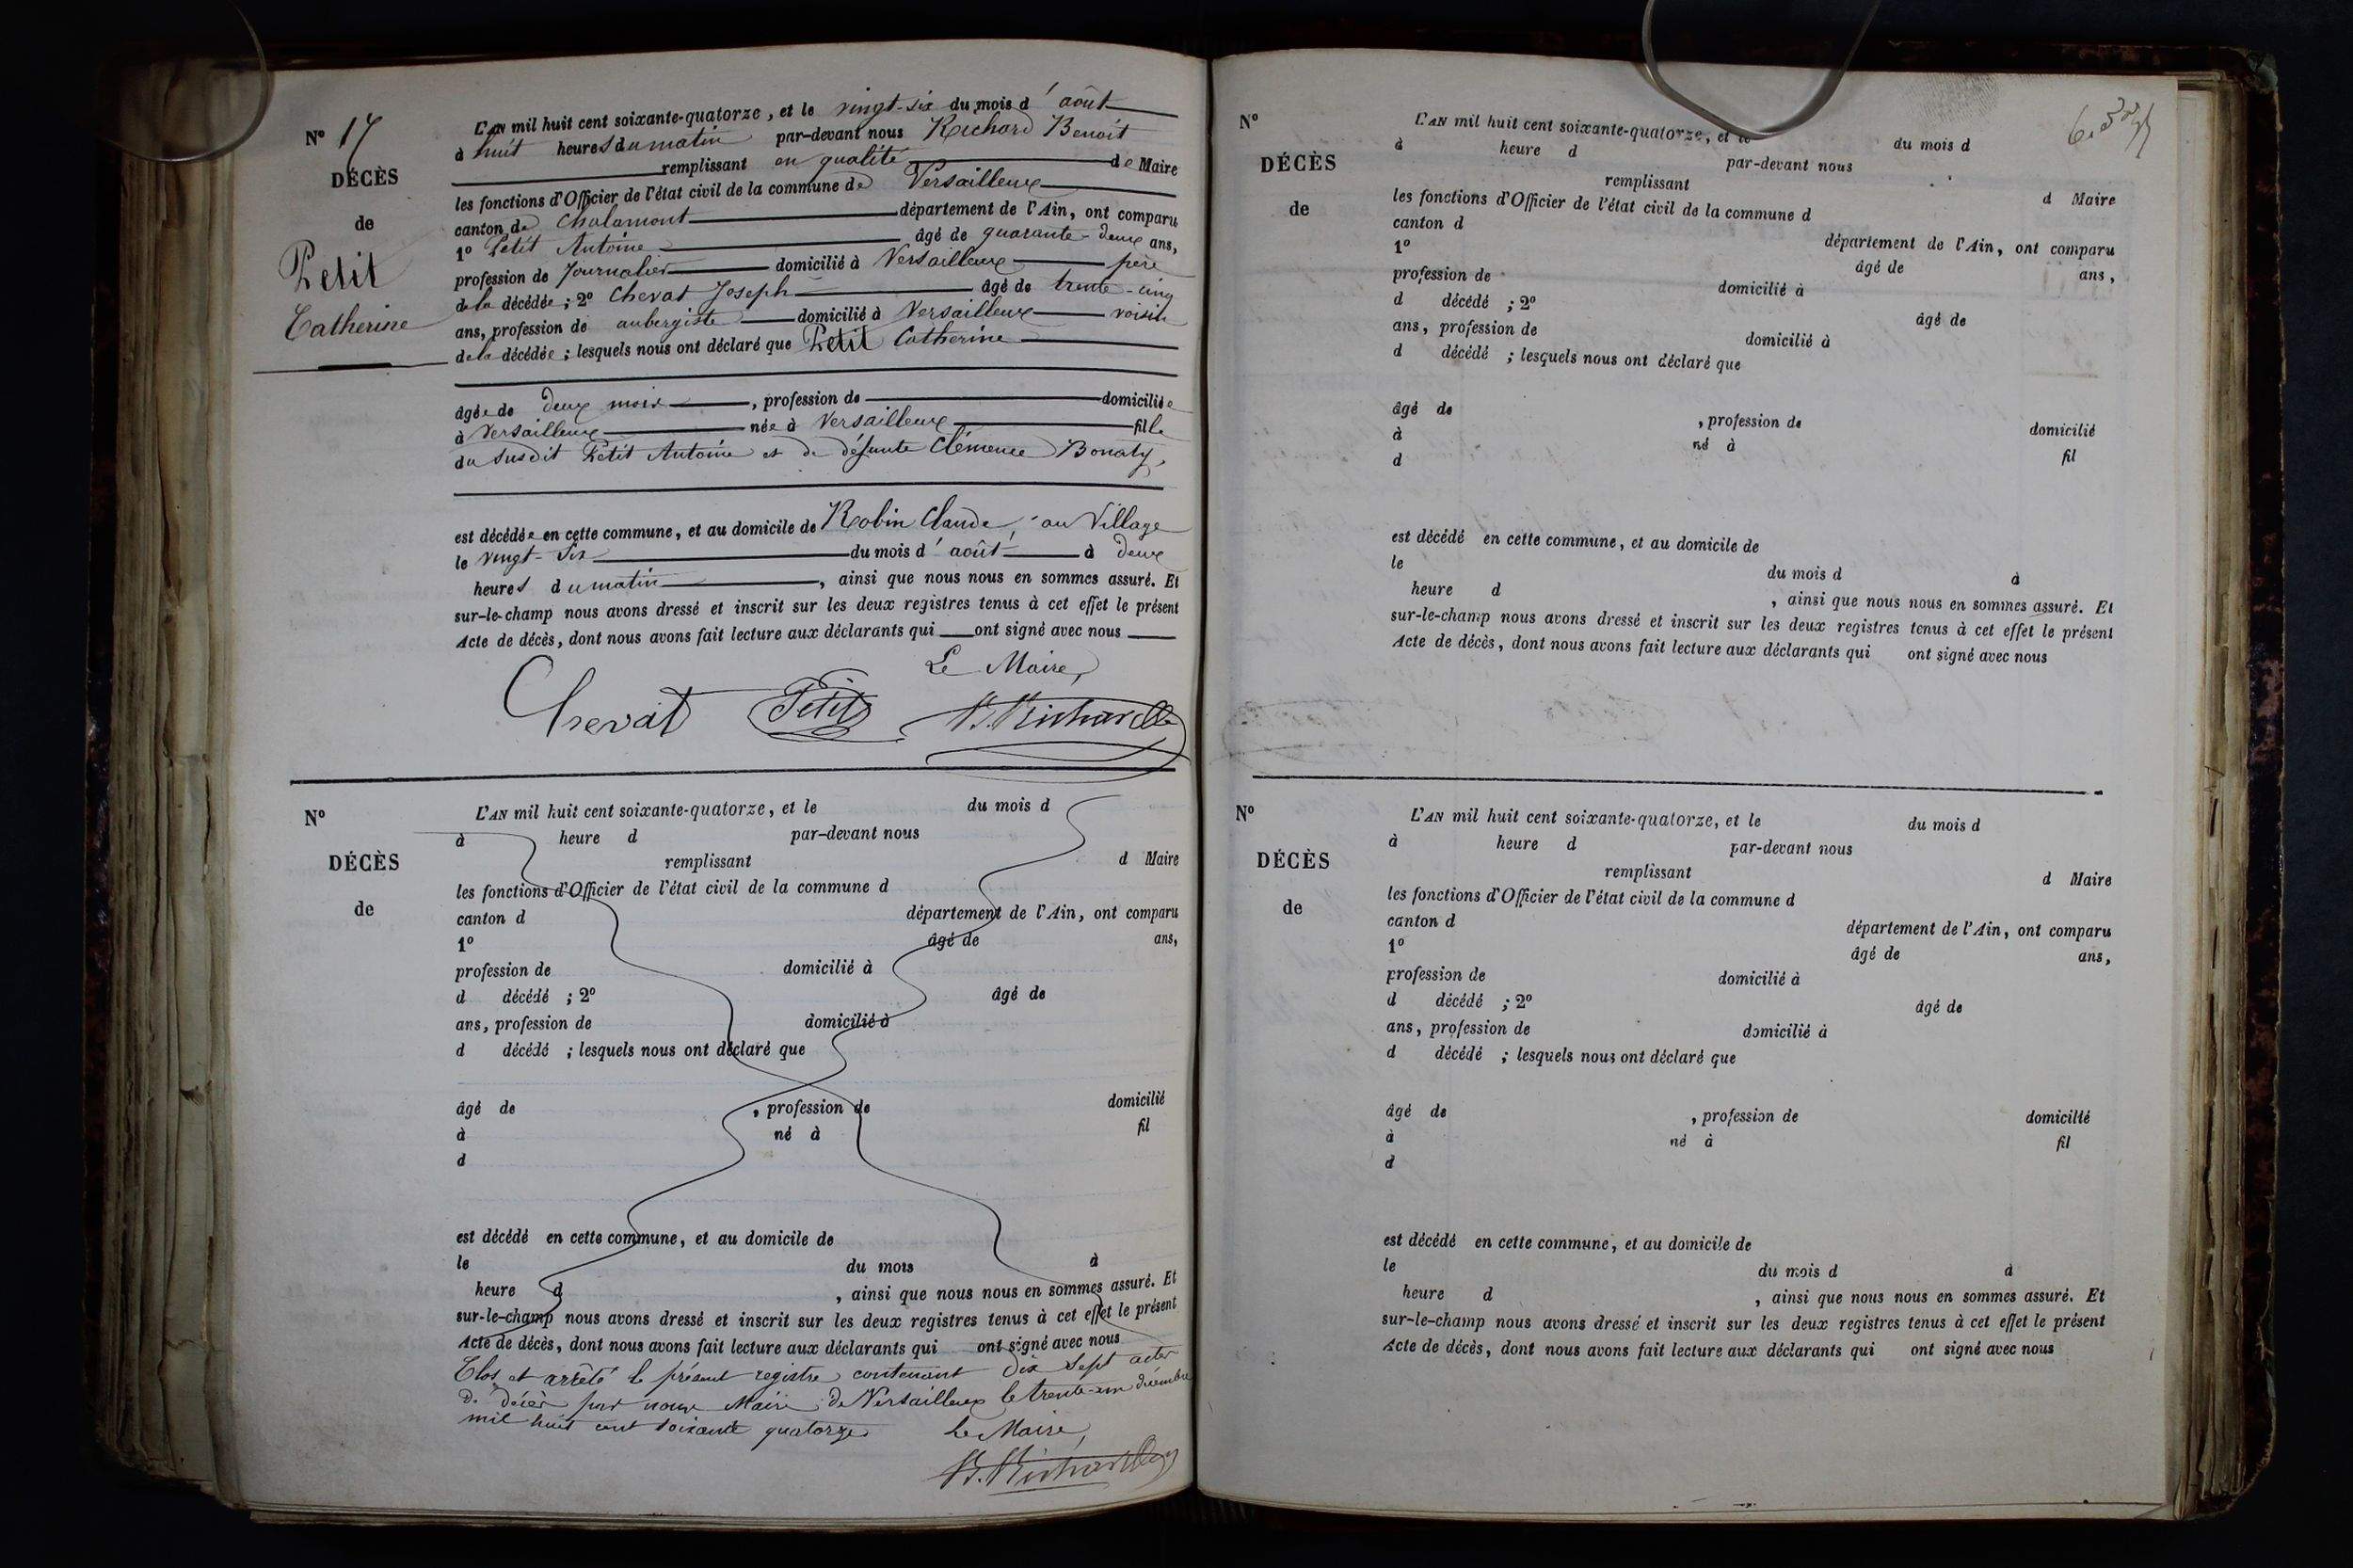 N° 17
DÉCÈS
de
Petit
Catherine
L'AN mil huit cent soixante-quatorze, et le vingt-six du mois d'août
à huit heures du matin par-devant nous Richard Benoît
remplissant en qualité de Maire
les fonctions d'Officier de l'état civil de la commune de Versailleux
canton de Chalamont département de l'Ain, ont comparu
1° Petit Antoine âgé de quarante-deux ans,
profession de Journalier domicilié à Versailleux père
de la décédée ; 2° Chevat Joseph âgé de trente-cinq
ans, profession de aubergiste domicilié à Versailleux voisin
de la décédée ; lesquels nous ont déclaré que Petit Catherine
âgée de deux mois, profession de domiciliée
à Versailleux née à Versailleux fille
du susdit Petit Antoine et de défunte Clémence Bonaty,
est décédée en cette commune, et au domicile de Robin Claude, au Village
le vingt-six du mois d'août à deux
heures du matin, ainsi que nous nous en sommes assuré. Et
sur-le-champ nous avons dressé et inscrit sur les deux registres tenus à cet effet le présent
Acte de décès, dont nous avons fait lecture aux déclarants qui ont signé avec nous
Le Maire,
Chevat Petit B. Richard
N°
DÉCÈS
de
L'AN mil huit cent soixante-quatorze, et le du mois d
à heure d par-devant nous
remplissant d Maire
les fonctions d'Officier de l'état civil de la commune d
canton d département de l'Ain, ont comparu
1° âgé de ans,
profession de domicilié à
d décédé ; 2° âgé de
ans, profession de domicilié à
d décédé ; lesquels nous ont déclaré que
âgé de , profession de domicilié
à né à fil
d
est décédé en cette commune, et au domicile de
le du mois à
heure d , ainsi que nous nous en sommes assuré. Et
sur-le-champ nous avons dressé et inscrit sur les deux registres tenus à cet effet le présent
Acte de décès, dont nous avons fait lecture aux déclarants qui ont signé avec nous
Clos et arrêté le présent registre contenant dix sept actes
de décès par nous Maire de Versailleux le trente-un décembre
mil huit cent soixante quatorze
Le Maire,
B. Richard
N°
DÉCÈS
de
L'AN mil huit cent soixante-quatorze, et le du mois d
à heure d par-devant nous
remplissant d Maire
les fonctions d'Officier de l'état civil de la commune d
canton d département de l'Ain, ont comparu
1° âgé de ans,
profession de domicilié à
d décédé ; 2° âgé de
ans, profession de domicilié à
d décédé ; lesquels nous ont déclaré que
âgé de , profession de domicilié
à né à fil
d
est décédé en cette commune, et au domicile de
le du mois d à
heure d , ainsi que nous nous en sommes assuré. Et
sur-le-champ nous avons dressé et inscrit sur les deux registres tenus à cet effet le présent
Acte de décès, dont nous avons fait lecture aux déclarants qui ont signé avec nous
N°
DÉCÈS
de
L'AN mil huit cent soixante-quatorze, et le du mois d
à heure d par-devant nous
remplissant d Maire
les fonctions d'Officier de l'état civil de la commune d
canton d département de l'Ain, ont comparu
1° âgé de ans,
profession de domicilié à
d décédé ; 2° âgé de
ans, profession de domicilié à
d décédé ; lesquels nous ont déclaré que
âgé de , profession de domicilié
à né à fil
d
est décédé en cette commune, et au domicile de
le du mois d à
heure d , ainsi que nous nous en sommes assuré. Et
sur-le-champ nous avons dressé et inscrit sur les deux registres tenus à cet effet le présent
Acte de décès, dont nous avons fait lecture aux déclarants qui ont signé avec nous